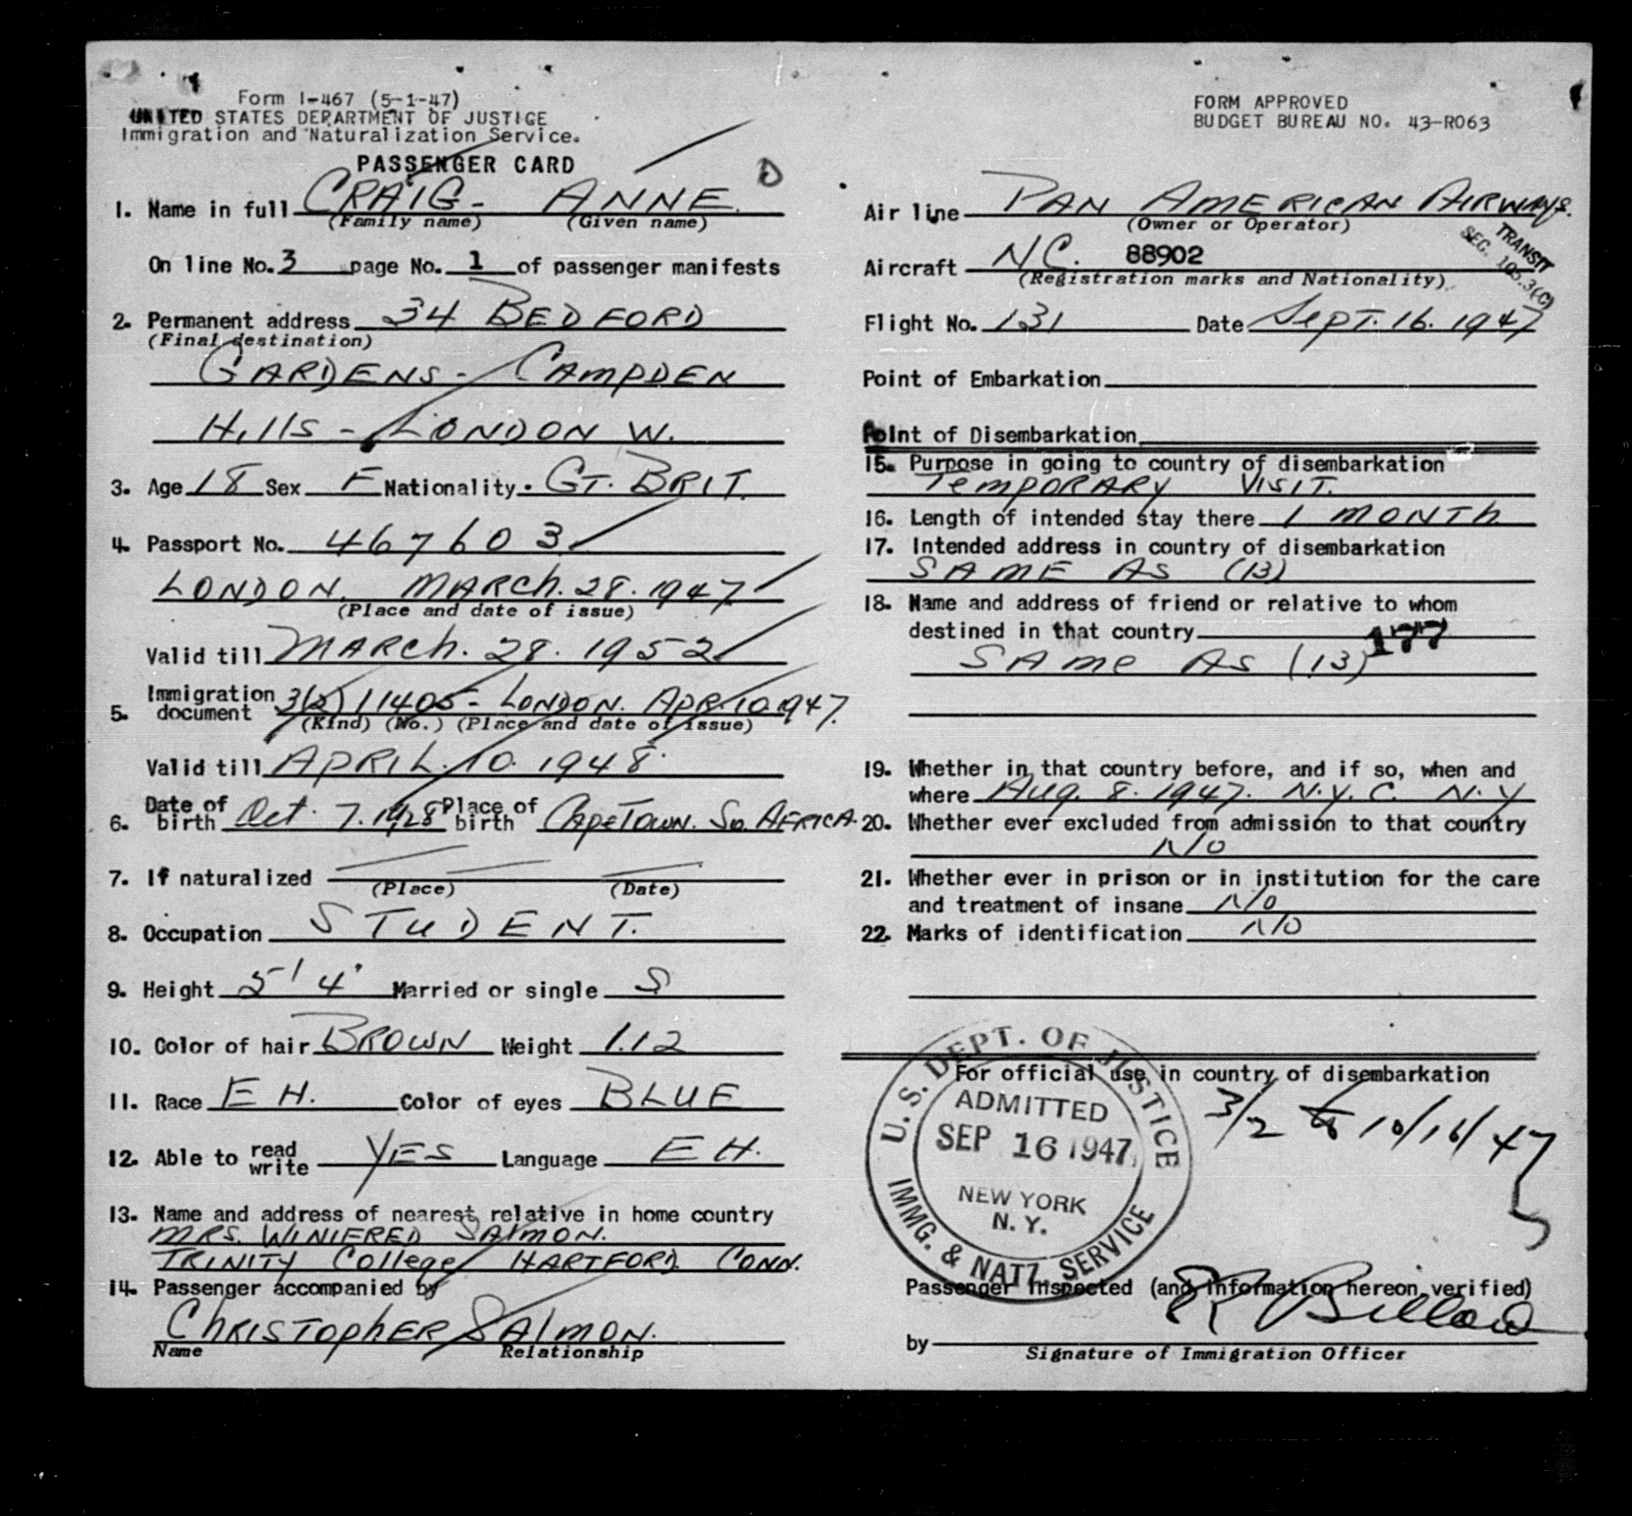 Form I-467 (5-1-47)
UNITED STATES DEPARTMENT OF JUSTICE
Immigration and Naturalization Service.
PASSENGER CARD
1. Name in full CRAIG - ANNE.
(Family name) (Given name)
On line No. 3 page No. 1 of passenger manifests
2. Permanent address 34 BEDFORD
(Final destination)
GARDENS - CAMPDEN
HIllS - LONDON W.
3. Age 18 Sex F Nationality. GT. BRIT.
4. Passport No. 467603
LONDON. MARCh. 28. 1947
(Place and date of issue)
Valid till MARCh. 28. 1952
5. Immigration document 3(2) 11405 - LONDON. APR. 10 1947.
(Kind) (No.) (Place and date of issue)
Valid till APRIL. 10. 1948.
6. Date of birth Oct. 7. 1928 Place of birth CAPETOWN. So. AFRICA.
7. If naturalized
(Place) (Date)
8. Occupation STUDENT.
9. Height 5' 4" Married or single S
10. Color of hair BROWN Weight 112
11. Race EH. Color of eyes BLUE
12. Able to read write YES Language EH.
13. Name and address of nearest relative in home country
MRS. WINIFRED SAlMON.
TRINITY College HARTFORD CONN.
14. Passenger accompanied by
ChRISTOPhER SAlMON.
Name Relationship
FORM APPROVED
BUDGET BUREAU NO. 43-R063
Air line PAN AMERICAN AIRWAYS.
(Owner or Operator)
TRANSIT
SEC. 105.3(C)
Aircraft NC. 88902
(Registration marks and Nationality)
Flight No. 131 Date Sept. 16. 1947
Point of Embarkation
Point of Disembarkation
15. Purpose in going to country of disembarkation
TEMPORARY VISIT.
16. Length of intended stay there 1 MONTh
17. Intended address in country of disembarkation
SAME AS (13)
18. Name and address of friend or relative to whom
destined in that country
177
SAME AS (13)
19. Whether in that country before, and if so, when and
where Aug. 8. 1947. N.Y.C. N.Y
20. Whether ever excluded from admission to that country
NO
21. Whether ever in prison or in institution for the care
and treatment of insane NO
22. Marks of identification NO
For official use in country of disembarkation
3/2 to 10/16/47
U.S. DEPT. OF JUSTICE
ADMITTED
SEP 16 1947
NEW YORK
N. Y.
IMMG. & NATZ. SERVICE
Passenger inspected (and information hereon verified)
by
Signature of Immigration Officer